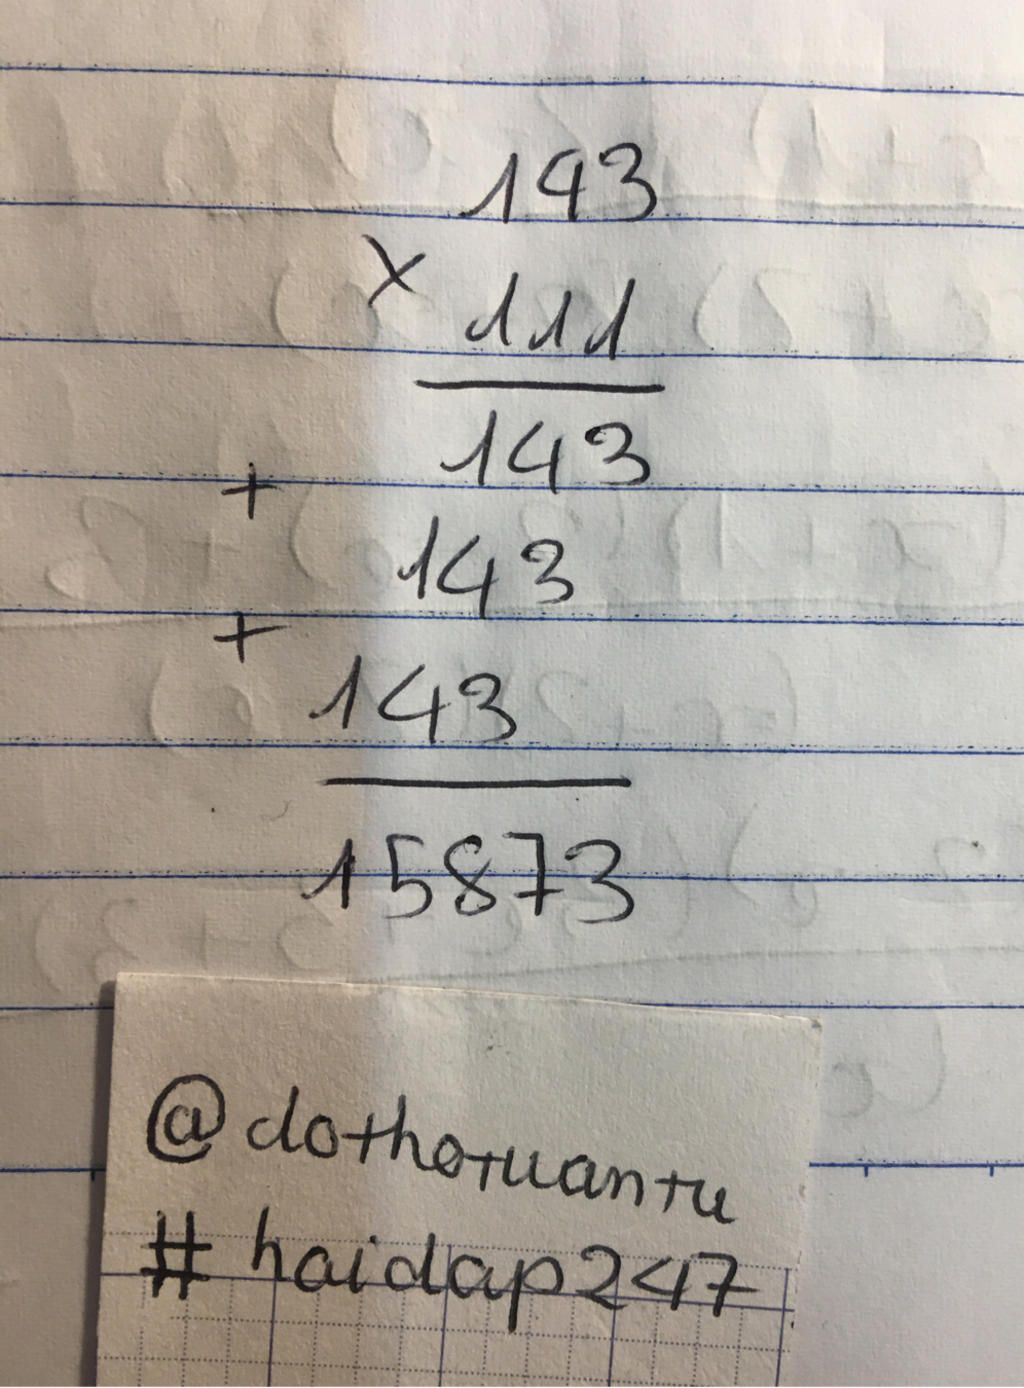 143
×
111
143
+
143
+
143
15873
@dothotuantu
#hoidap247